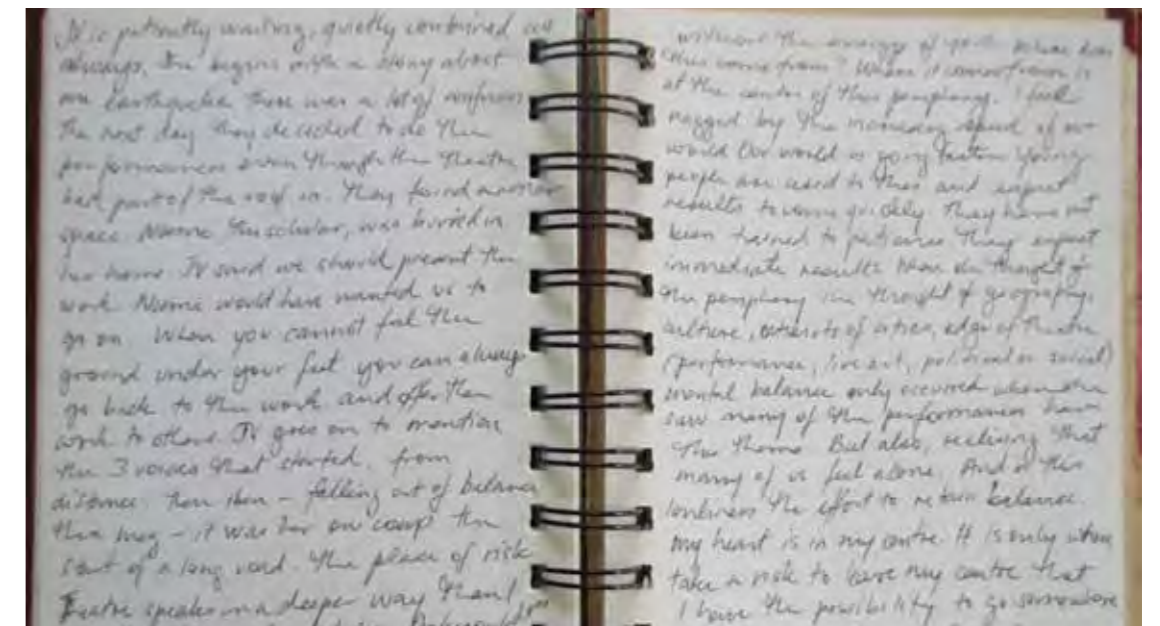 JV is patiently waiting, quietly combined as
always, She begins with a story about
an earthquake there was a lot of confusion
The next day they decided to do the
performances even though the theatre
had part of the roof in. They found another
space. the scholar, was buried in
her home JV said we should present the
work. would have wanted us to
go on. When you cannot feel the
ground under your feet you can always
go back to the work and offer the
work to others. JV goes on to mention
the 3 voices that started, from
distance. then – falling out of balance
then – it was her on the
sort of a long road. The place of risk
Theatre speaks in a deeper way than
without the energy of youth where does
this come from? Where it comes from is
at the centre of the periphery. I feel
nagged by the increasing speed of our
world Our world is going faster. Young
people are used to this and expect
results to come quickly. They have not
been trained to patience They expect
immediate results When she thought of
the periphery she thought of geography,
culture, outskirts of cities, edge of theatre
(performance, live art, political or social)
mental balance only occurred when she
saw many of the performances have
this theme But also, realising that
many of us feel alone. And in this
loneliness the effort to retain balance.
My heart is in my centre. It is only when
take a risk to leave my centre that
I have the possibility to go somewhere